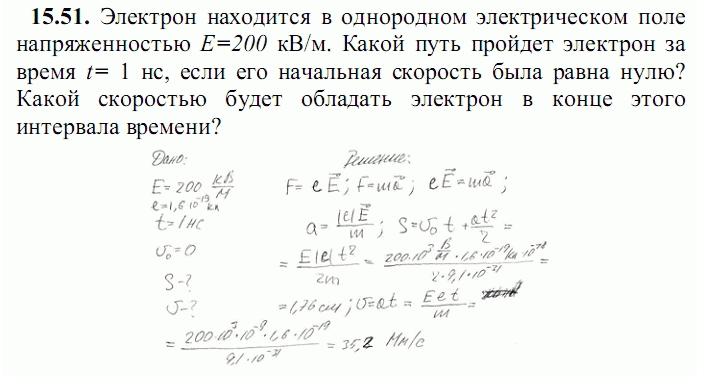 15.51. Электрон находится в однородном электрическом поле
напряженностью E=200 кВ/м. Какой путь пройдет электрон за
время t= 1 нс, если его начальная скорость была равна нулю?
Какой скоростью будет обладать электрон в конце этого
интервала времени?
Дано:
E = 200 кВ/м
e=1,6·10⁻¹⁹ Кл
t = 1 нс
υ₀ = 0
S - ?
υ - ?
Решение:
F = e E⃗ ; F = ma⃗ ; e E⃗ = ma⃗ ;
a = |e|E⃗/m ; S = υ₀ t + at²/2 =
= E|e|t²/2m = 200·10³ В/м · 1,6·10⁻¹⁹ Кл · 10⁻¹⁸/2·9,1·10⁻³¹ =
= 1,76 см ; υ = at = E e t/m =
= 200·10³·10⁻⁹·1,6·10⁻¹⁹/9,1·10⁻³¹ = 35,2 Мм/с